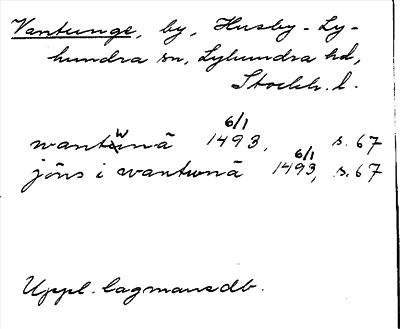 Vantunge, by, Husby-Ly-
hundra sn, Lyhundra hd,
Stockh. l.
wantwnā 6/1 1493, s. 67
jōns i wantwnā 6/1 1493, s. 67
Uppl. lagmansdb.